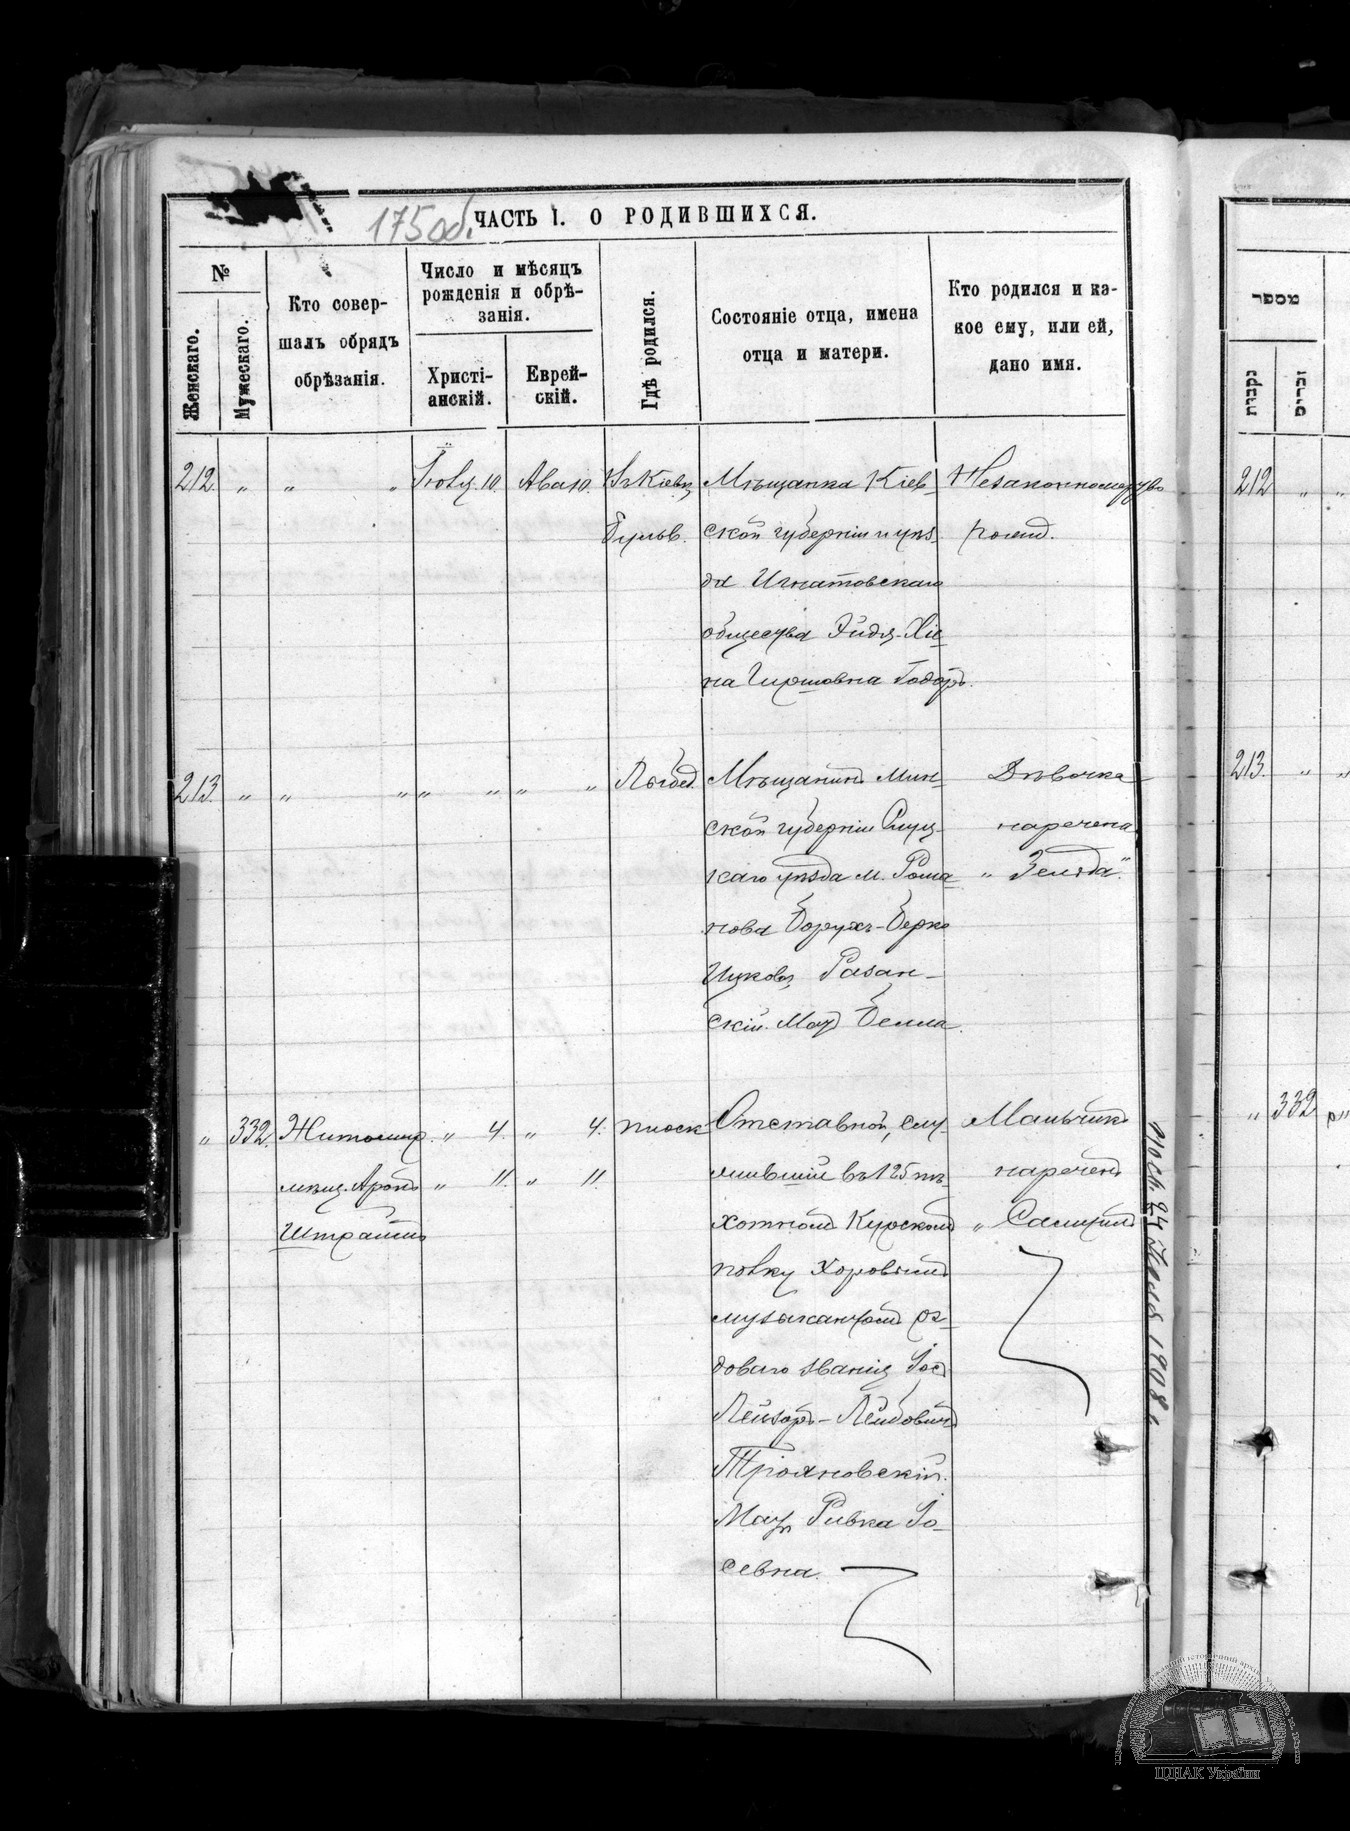 175 об.
ЧАСТЬ I. О РОДИВШИХСЯ.
№
Женскаго.
Мужескаго.
Кто совер-
шалъ обрядъ
обрѣзанія.
Число и мѣсяцъ
рожденія и обрѣ-
занія.
Христі-
анскій.
Еврей-
скій.
Гдѣ родился.
Состояніе отца, имена
отца и матери.
Кто родился и ка-
кое ему, или ей,
дано имя.
212. " " " Іюля 10. Ава 10.
Въ Кіевѣ
Бульв.
Мѣщанка Кіев-
ской губерніи и уѣз-
да Игнатовскаго
общества
на Гиршовна
рожд.
213. " " " " " " "
Лыбед.
Мѣщанинъ Мин-
ской губерніи Слуц-
каго уѣзда м. Рома-
нова Борухъ-Берко
Ицковъ Разан-
скій. Мать Белла.
Дѣвочка
наречена
"Зелда".
" 332. Житомир. " 4. " 4. Плоск.
мѣщ. Аронъ " 11. " 11.
Отставной, слу-
жившій въ 125 пѣ-
хотномъ Курскомъ
полку Хоровымъ
музыкантомъ ря-
доваго званія Іос.
Лейзоръ-Лейбовичъ
Трояновскій.
Мать Ривка Іо-
севна.
Мальчикъ
нареченъ
"Самуилъ
1908 г.
מספר
נקבות
זכרים
212 " "
213. " "
" 332
ЦНАК України